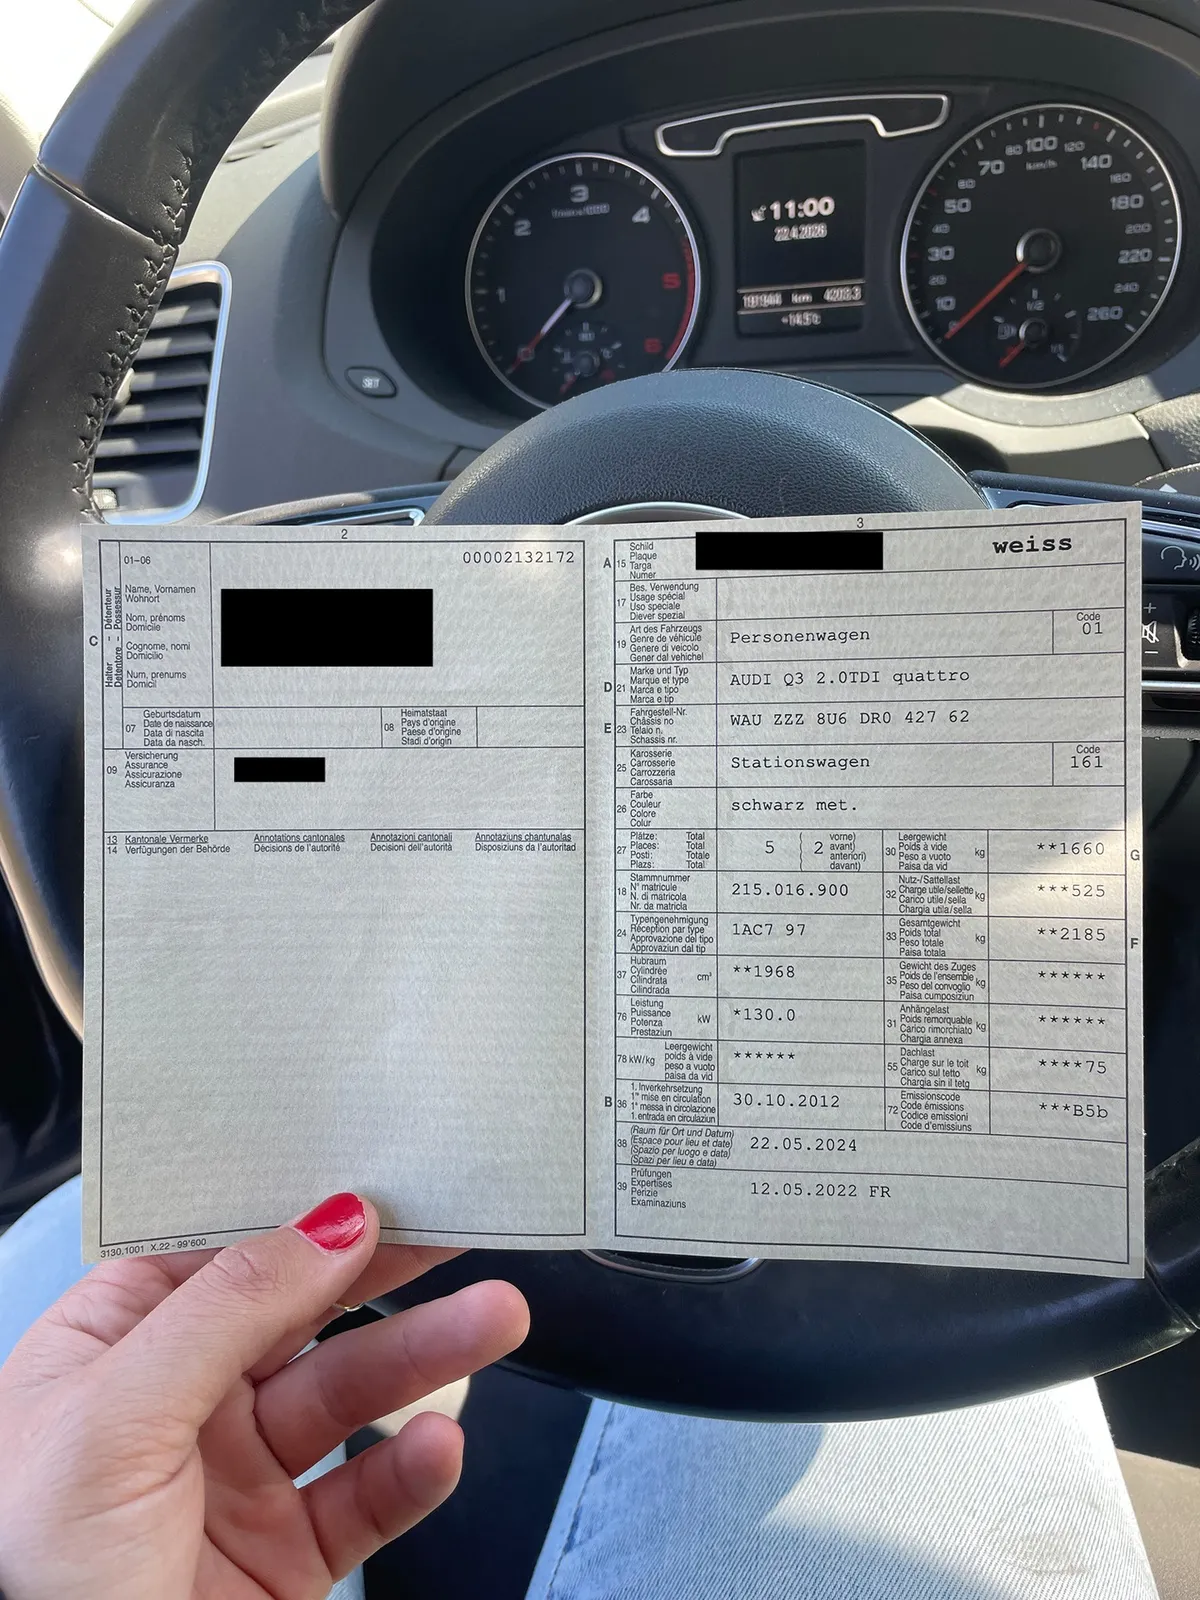 1
2
3
4
5
6
1/min x 1000
11:00
22.4.2026
191944 km 4203.3
+14.5°C
10
20
30
40
50
60
70
80
100
120
140
160
180
200
220
240
260
km/h
1/2
1/1
SET
2
01-06
00002132172
C
Halter - Détenteur
Detentore - Possessur
Name, Vornamen
Wohnort
Nom, prénoms
Domicile
Cognome, nomi
Domicilio
Num, prenums
Domicil
07
Geburtsdatum
Date de naissance
Data di nascita
Data da nasch.
08
Heimatstaat
Pays d'origine
Paese d'origine
Stadi d'origin
09
Versicherung
Assurance
Assicurazione
Assicuranza
13 Kantonale Vermerke Annotations cantonales Annotazioni cantonali Annotaziuns chantunalas
14 Verfügungen der Behörde Décisions de l'autorité Decisioni dell'autorità Disposiziuns da l'autoritad
3130.1001 X.22 - 99'600
3
A 15
Schild
Plaque
Targa
Numer
weiss
17
Bes. Verwendung
Usage spécial
Uso speciale
Diever spezial
19
Art des Fahrzeugs
Genre de véhicule
Genere di veicolo
Gener dal vehichel
Personenwagen
Code
01
D 21
Marke und Typ
Marque et type
Marca e tipo
Marca e tip
AUDI Q3 2.0TDI quattro
E 23
Fahrgestell-Nr.
Châssis no
Telaio n.
Schassis nr.
WAU ZZZ 8U6 DR0 427 62
25
Karosserie
Carrosserie
Carrozzeria
Carossaria
Stationswagen
Code
161
26
Farbe
Couleur
Colore
Colur
schwarz met.
27
Plätze: Total
Places: Total
Posti: Totale
Plazs: Total
5
( 2
vorne)
avant)
anteriori)
davant)
30
Leergewicht
Poids à vuoto
Peso a vuoto
Paisa da vid
kg
**1660
G
18
Stammnummer
N° matricule
N. di matricola
Nr. da matricla
215.016.900
32
Nutz-/Sattellast
Charge utile/sellette
Carico utile/sella
Chargia utila/sella
kg
***525
24
Typengenehmigung
Réception par type
Approvazione del tipo
Approvaziun dal tip
1AC7 97
33
Gesamtgewicht
Poids total
Peso totale
Paisa totala
kg
**2185
F
37
Hubraum
Cylindrée
Cilindrata
Cilindrada
cm³
**1968
35
Gewicht des Zuges
Poids de l'ensemble
Peso del convoglio
Paisa cumposiziun
kg
******
76
Leistung
Puissance
Potenza
Prestaziun
kW
*130.0
31
Anhängelast
Poids remorquable
Carico rimorchiato
Chargia annexa
kg
******
78 kW/kg
Leergewicht
poids à vide
peso a vuoto
paisa da vid
******
55
Dachlast
Charge sur le toit
Carico sul tetto
Chargia sin il tetg
kg
****75
B 36
1. Inverkehrsetzung
1re mise en circulation
1a messa in circolazione
1. entrada en circulaziun
30.10.2012
72
Emissionscode
Code émissions
Codice emissioni
Code d'emissiuns
***B5b
38
(Raum für Ort und Datum)
(Espace pour lieu et date)
(Spazio per luogo e data)
(Spazi per lieu e data)
22.05.2024
39
Prüfungen
Expertises
Perizie
Examinaziuns
12.05.2022 FR